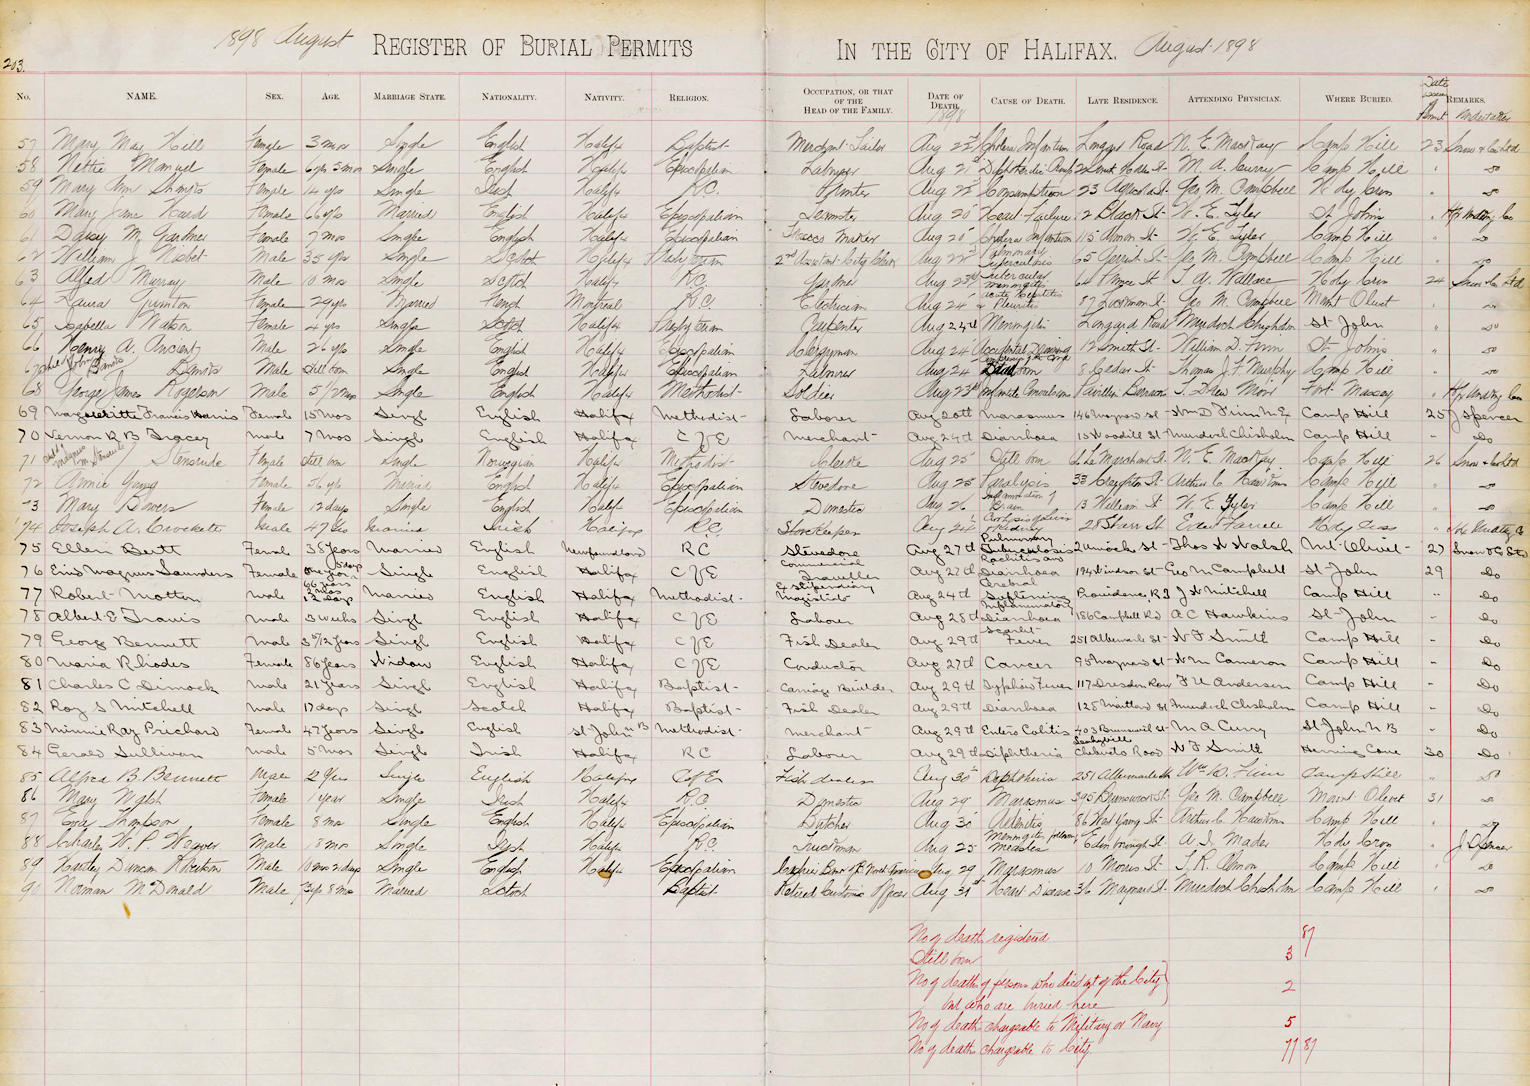 1898 August REGISTER OF BURIAL PERMITS IN THE CITY OF HALIFAX. August 1898
203.
No. NAME. SEX. AGE. MARRIAGE STATE. NATIONALITY. NATIVITY. RELIGION. OCCUPATION, OR THAT OF THE HEAD OF THE FAMILY. DATE OF DEATH. 1898 CAUSE OF DEATH. LATE RESIDENCE. ATTENDING PHYSICIAN. WHERE BURIED. Date Permit REMARKS. Undertaker
57 Mary May Hill Female 3 mos Single English Halifx Baptist Merchant Tailor Aug 22 Cholera Infantum Longard Road N. E. MacKay Camp Hill 23 Snow & Co Ltd
58 Nettie Manuel Female 6 yrs 3 mos Single English Halifx Episcopalian Labourer Aug 21 M. A. Curry Camp Hill " do
59 Mary Ann Female 14 yrs Single Irish Halifx R.C. Aug 22 Consumption 23 Agricola St Geo M. Campbell Holy Cross " do
60 Mary Jane Female 66 yrs Married English Halifx Episcopalian Teamster Aug 20 Heart Failure 12 Black St W. E. Tyler St Johns "
61 Daisy M. Gardner Female 7 mos Single English Halifx Episcopalian Maker Aug 20 Cholera Infantum 115 Almon St W. E. Tyler Camp Hill " do
62 William J Nisbet Male 35 yrs Single Scotch Halifx 2nd Assistant City Clerk Aug 22 Pulmonary Tuberculosis 65 Gerrish St Geo M. Campbell Camp Hill " do
63 Alfred Murray Male 10 mos Single Scotch Halifx R.C. Aug 23rd Tubercular meningitis 64 St T. A. Wallace Holy Cross 24 Snow & Co Ltd
64 Laura Quinton Female 29 yrs Married French Montreal R.C. Electrician Aug 24 87 St Geo M. Campbell Mount Olivet " do
65 Isabella Watson Female 4 yrs Single Scotch Halifx Presbyterian Carpenter Aug 24th Meningitis Longard Road Murdoch Chisholm St John " do
66 Henry A. Ancient Male 26 yrs Single English Halifx Episcopalian Clergyman Aug 24 Accidental Drowning 12 Smith St William D. Finn St Johns " do
67 Male Still born Single English Halifx Episcopalian Labourer Aug 24 8 Cedar St Thomas J F Murphy Camp Hill " do
68 George James Rogerson Male 5 1/2 mos Single English Halifx Methodist Soldier Aug 23rd Infantile Convulsion Pavilion Barracks Fort Massey "
69 Margueritte Francis Harris Female 10 Mos Single English Halifax Methodist Laborer Aug 20th Marasmus 146 Maynard St Wm D Finn M.Ex Camp Hill 25 J Spencer
70 Vernon R B Tracey male 7 Mos Single English Halifax C of E merchant Aug 24th Diarrhoea 15 Woodill St Murdoch Chisholm Camp Hill " Do
71 Stensrude Female Still born Single Norwegian Halifx Methodist Clerk Aug 25 Still born Le Marchant St N. E. MacKay Camp Hill 26 Snow & Co Ltd
72 Annie Young Female 56 yrs Married English Halifx Episcopalian Stevedore Aug 25 Paralysis 33 Creighton St Camp Hill " do
73 Mary Bowers Female 12 days Single English Halifx Episcopalian Domestic Aug 26 Inflammation of Brain 13 William St W. E. Tyler Camp Hill " do
74 Joseph A. Crockett Male 47 yrs Married Irish Halifax R.C. Storekeeper Aug 24 28 Starr St Edw Farrell Holy Cross "
75 Ellen Bertt Female 38 years Married English Newfoundland R C Stevedore Aug 27th Pulmonary Tuberculosis Thos W Walsh Mt. Olivet 27 Snow & Co Ltd
76 Enis Magnus Saunders Female one year 5 days Single English Halifax C of E Commercial Traveller Aug 27th Diarrhoea 194 Windsor St Geo M Campbell St John 29 Do
77 Robert Motton male 66 years 2 mos 12 days Married English Halifax Methodist Ex Stipendiary Magistrate Aug 24th Cerebral Softening Providence, R I J W Mitchell Camp Hill " Do
78 Albert E Travis male 3 weeks Single English Halifax C of E Labour Aug 28th Inflammatory Diarrhoea 186 Campbell Rd A C Hawkins St John " Do
79 George Bennett male 3 5/12 years Single English Halifax C of E Fish Dealer Aug 29th Scarlet Fever 251 Albemarle St W F Smith Camp Hill " Do
80 Maria Rhodes Female 86 years Widow English Halifax C of E Conductor Aug 27th Cancer 95 Maynard St W M Cameron Camp Hill " Do
81 Charles C Dimock male 21 years Single English Halifax Baptist Carriage Builder Aug 29th Typhoid Fever 117 Dresden Row F U Anderson Camp Hill " Do
82 Roy S Mitchell male 17 days Single Scotch Halifax Baptist Fish Dealer Aug 29th Diarrhoea 125 Maitland St Murdoch Chisholm Camp Hill " Do
83 Minnie Ray Prichard Female 47 years Single English St John N B Methodist merchant Aug 29th Entero Colitis 403 Brunswick St M A Curry St John N B " Do
84 Gerald Sullivan male 5 Mos Single Irish Halifax R C Labour Aug 29th Diphtheria Chebucto Road W F Smith Herring Cove 30 Do
85 Alfred B. Bennett Male 2 Yrs Single English Halifax C of E Fish dealer Aug 30 Diphtheria 251 Albermarle St Wm D. Finn Camp Hill " do
86 Mary Walsh Female 1 year Single Irish Halifx R.C. Domestic Aug 29 Marasmus 395 Brunswick St Geo M. Campbell Mount Olivet 31 do
87 Eva Thompson Female 8 mos Single English Halifx Episcopalian Butcher Aug 30 86 West Young St Camp Hill " do
88 Charles W. P. Weaver Male 18 mos Single Irish Halifx R.C. Truckman Aug 25 Meningitis following measles Edinborough St A. I. Mader Holy Cross " J Spencer
89 Hartley Duncan Robertson Male 10 mos 2 days Single English Halifx Episcopalian Cashier Bank of B. North America Aug 29 Marasmus 10 Morris St T. R. Almon Camp Hill " do
90 Norman McDonald Male 8 mos Married Scotch Baptist Retired Customs Officer Aug 31st Heart Disease 36 Maynard St Murdoch Chisholm Camp Hill " do
No of deaths registered 87
Still born 3
No of deaths of persons who died out of the City
but who are buried here 2
No of deaths chargeable to Military or Navy 5
No of deaths chargeable to City. 77 87